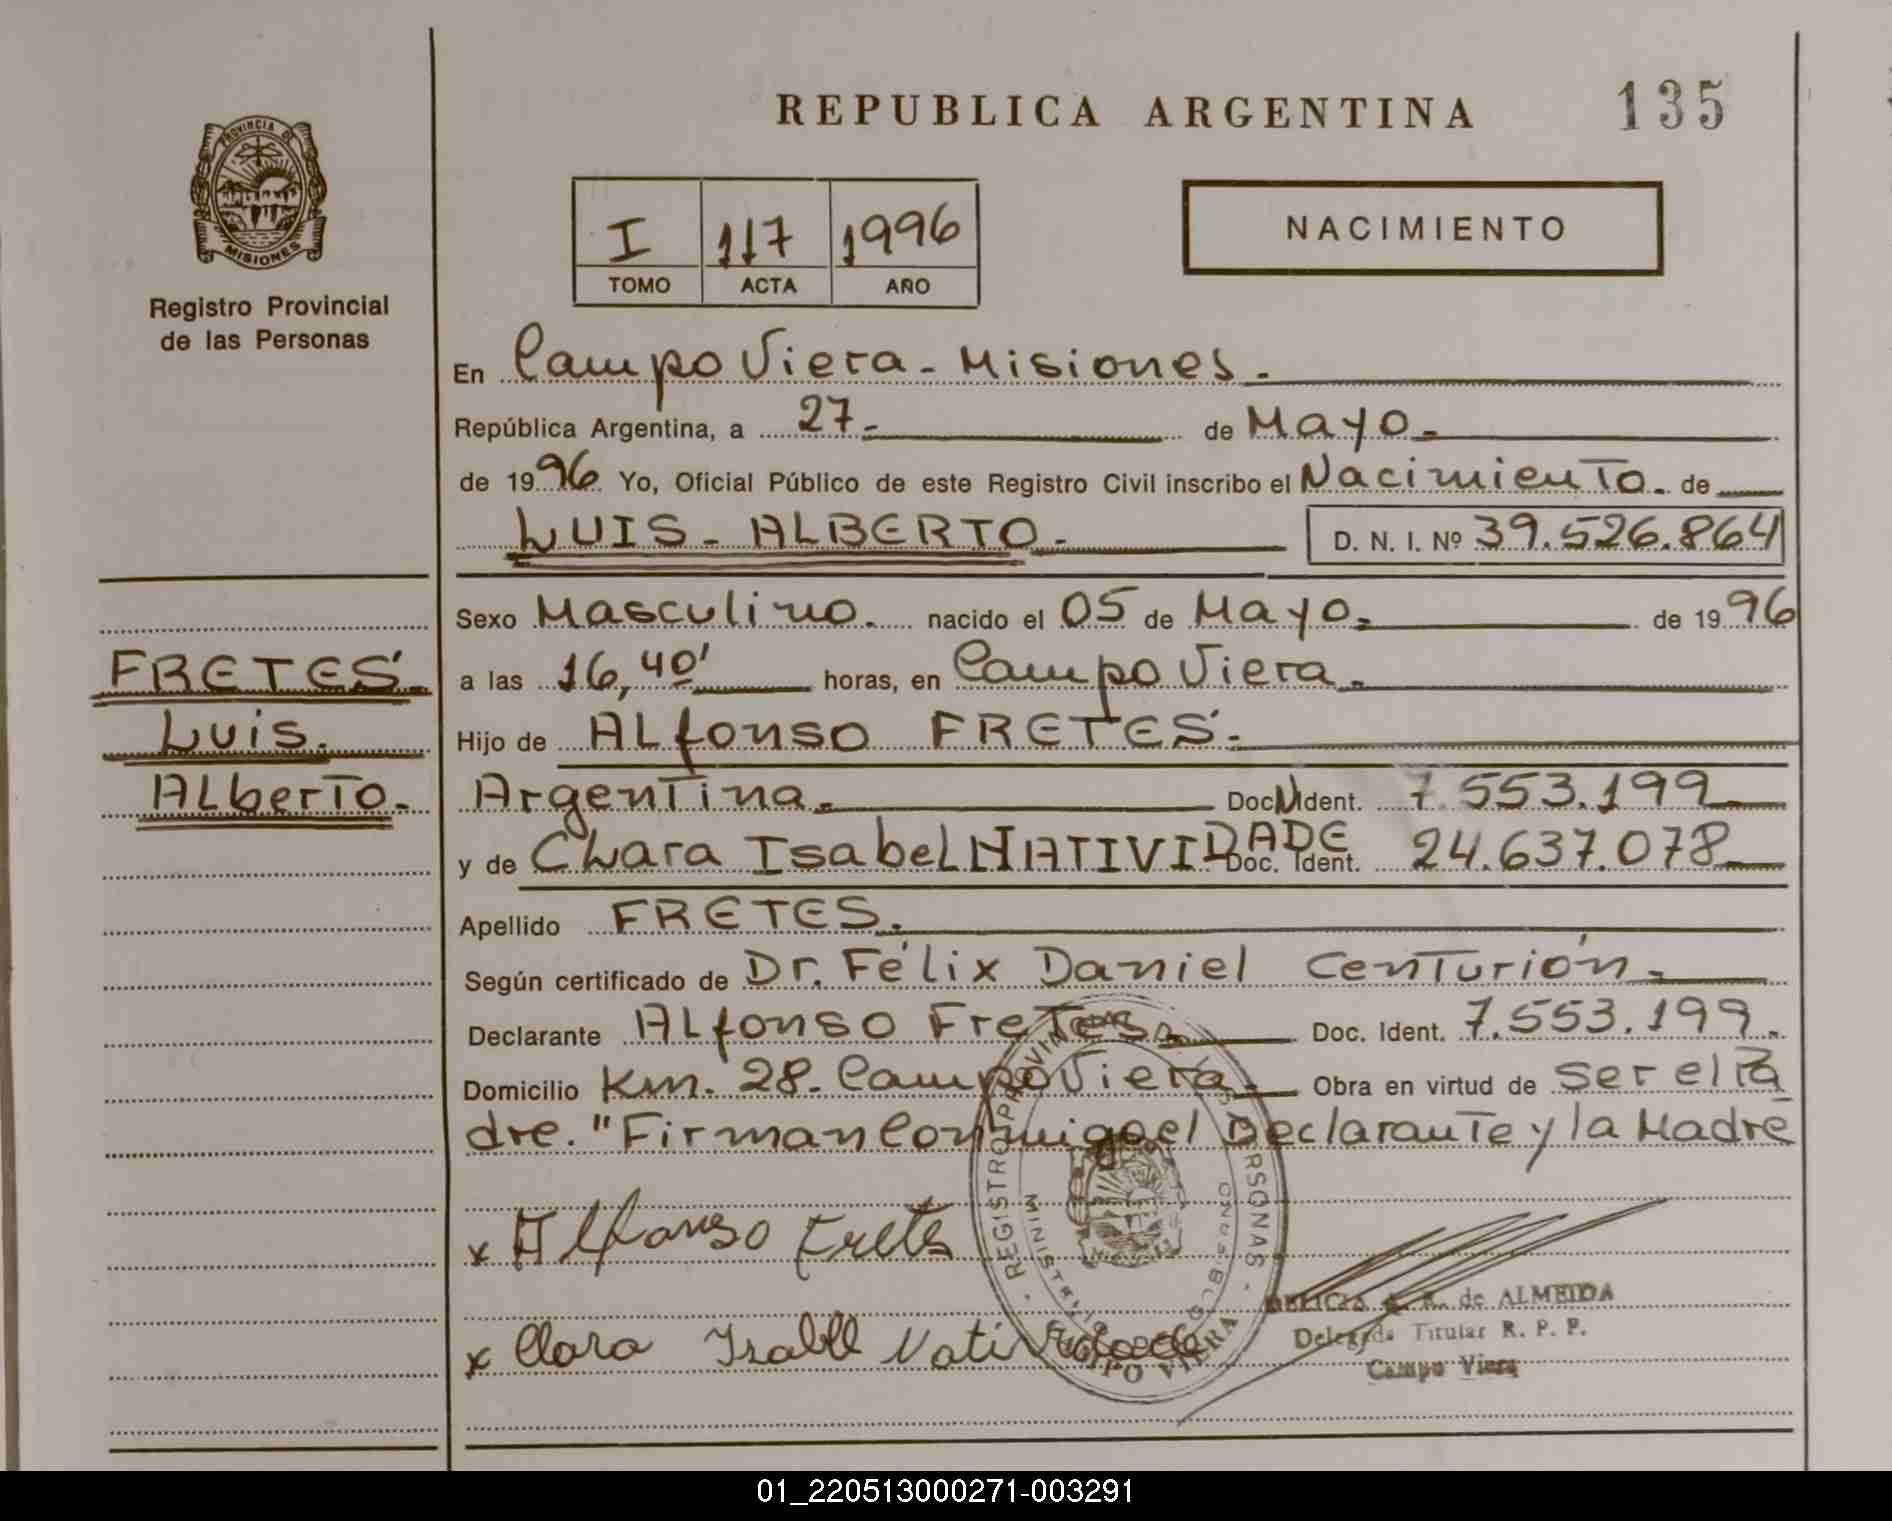 REPUBLICA ARGENTINA 135
PROVINCIA DE
MISIONES
Registro Provincial
de las Personas
I 117 1996
TOMO ACTA AÑO
NACIMIENTO
En Campo Viera - Misiones.
República Argentina, a 27- de Mayo.
de 1996 Yo, Oficial Público de este Registro Civil inscribo el Nacimiento. de
LUIS - ALBERTO. D. N. I. Nº 39.526.864
Sexo Masculino. nacido el 05 de Mayo. de 1996
a las 16,40' horas, en Campo Viera.
Hijo de Alfonso FRETES.
Argentina. Doc. Ident. 7.553.199
y de Clara Isabel NATIVIDADE Doc. Ident. 24.637.078
Apellido FRETES.
Según certificado de Dr. Félix Daniel Centurión.
Declarante Alfonso Fretes. Doc. Ident. 7.553.199.
Domicilio Km. 28. Campo Viera. Obra en virtud de ser el Pa
dre. "Firman Conmigo el Declarante y la Madre
x Alfonso Fretes
x Clara Isabel Natividade
FRETES.
Luis.
Alberto.
REGISTRO PROVINCIAL PERSONAS
MINISTERIO
CAMPO VIERA
de ALMEIDA
Delegada Titular R. P. P.
Campo Viera
01_220513000271-003291